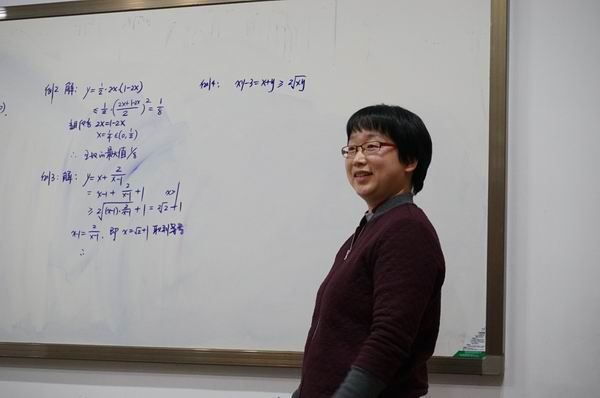 例2 解: y=½·2x·(1-2x)
≤½·(2x+1-2x/2)²=1/8
当且仅当 2x=1-2x
x=¼∈(0,½)
∴ 的最大值1/8
例3:解: y=x+2/x-1
=x-1+2/x-1+1 x>1
≥2√(x-1)·2/x-1+1=2√2+1
x-1=2/x-1, 即 x=√2+1 取到等号
∴
例4: xy-3=x+y≥2√xy